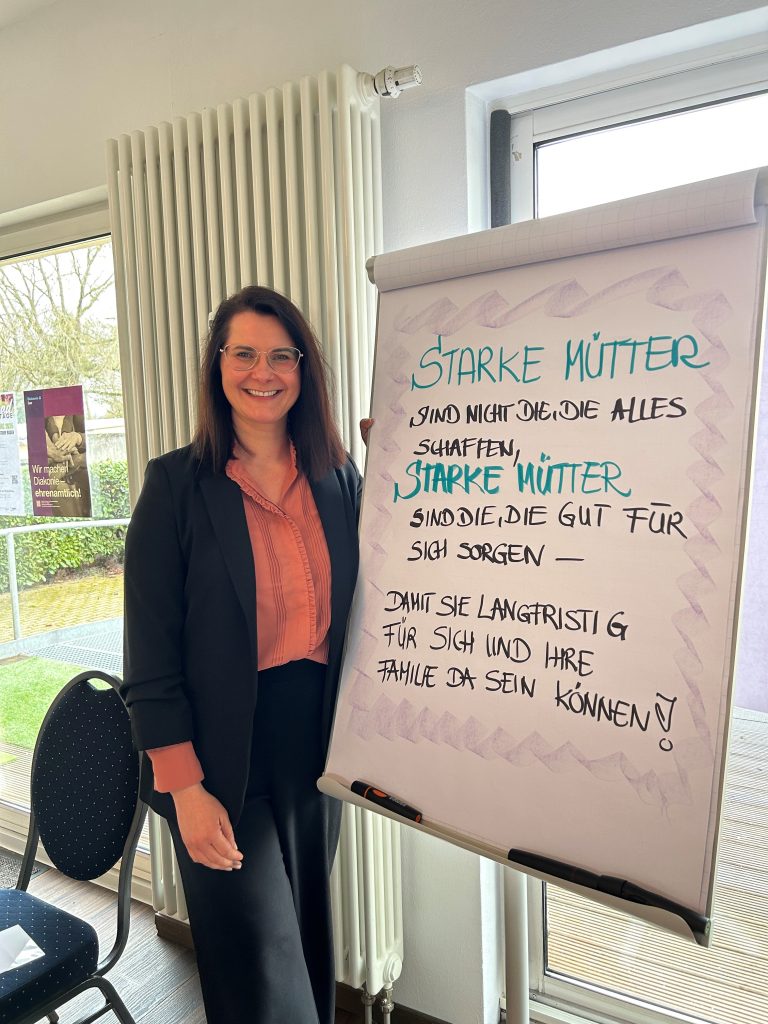 STARKE MÜTTER
SIND NICHT DIE, DIE ALLES
SCHAFFEN,
STARKE MÜTTER
SIND DIE, DIE GUT FÜR
SICH SORGEN —
DAMIT SIE LANGFRISTIG
FÜR SICH UND IHRE
FAMILIE DA SEIN KÖNNEN!
Wir machen
Diakonie –
ehrenamtlich!